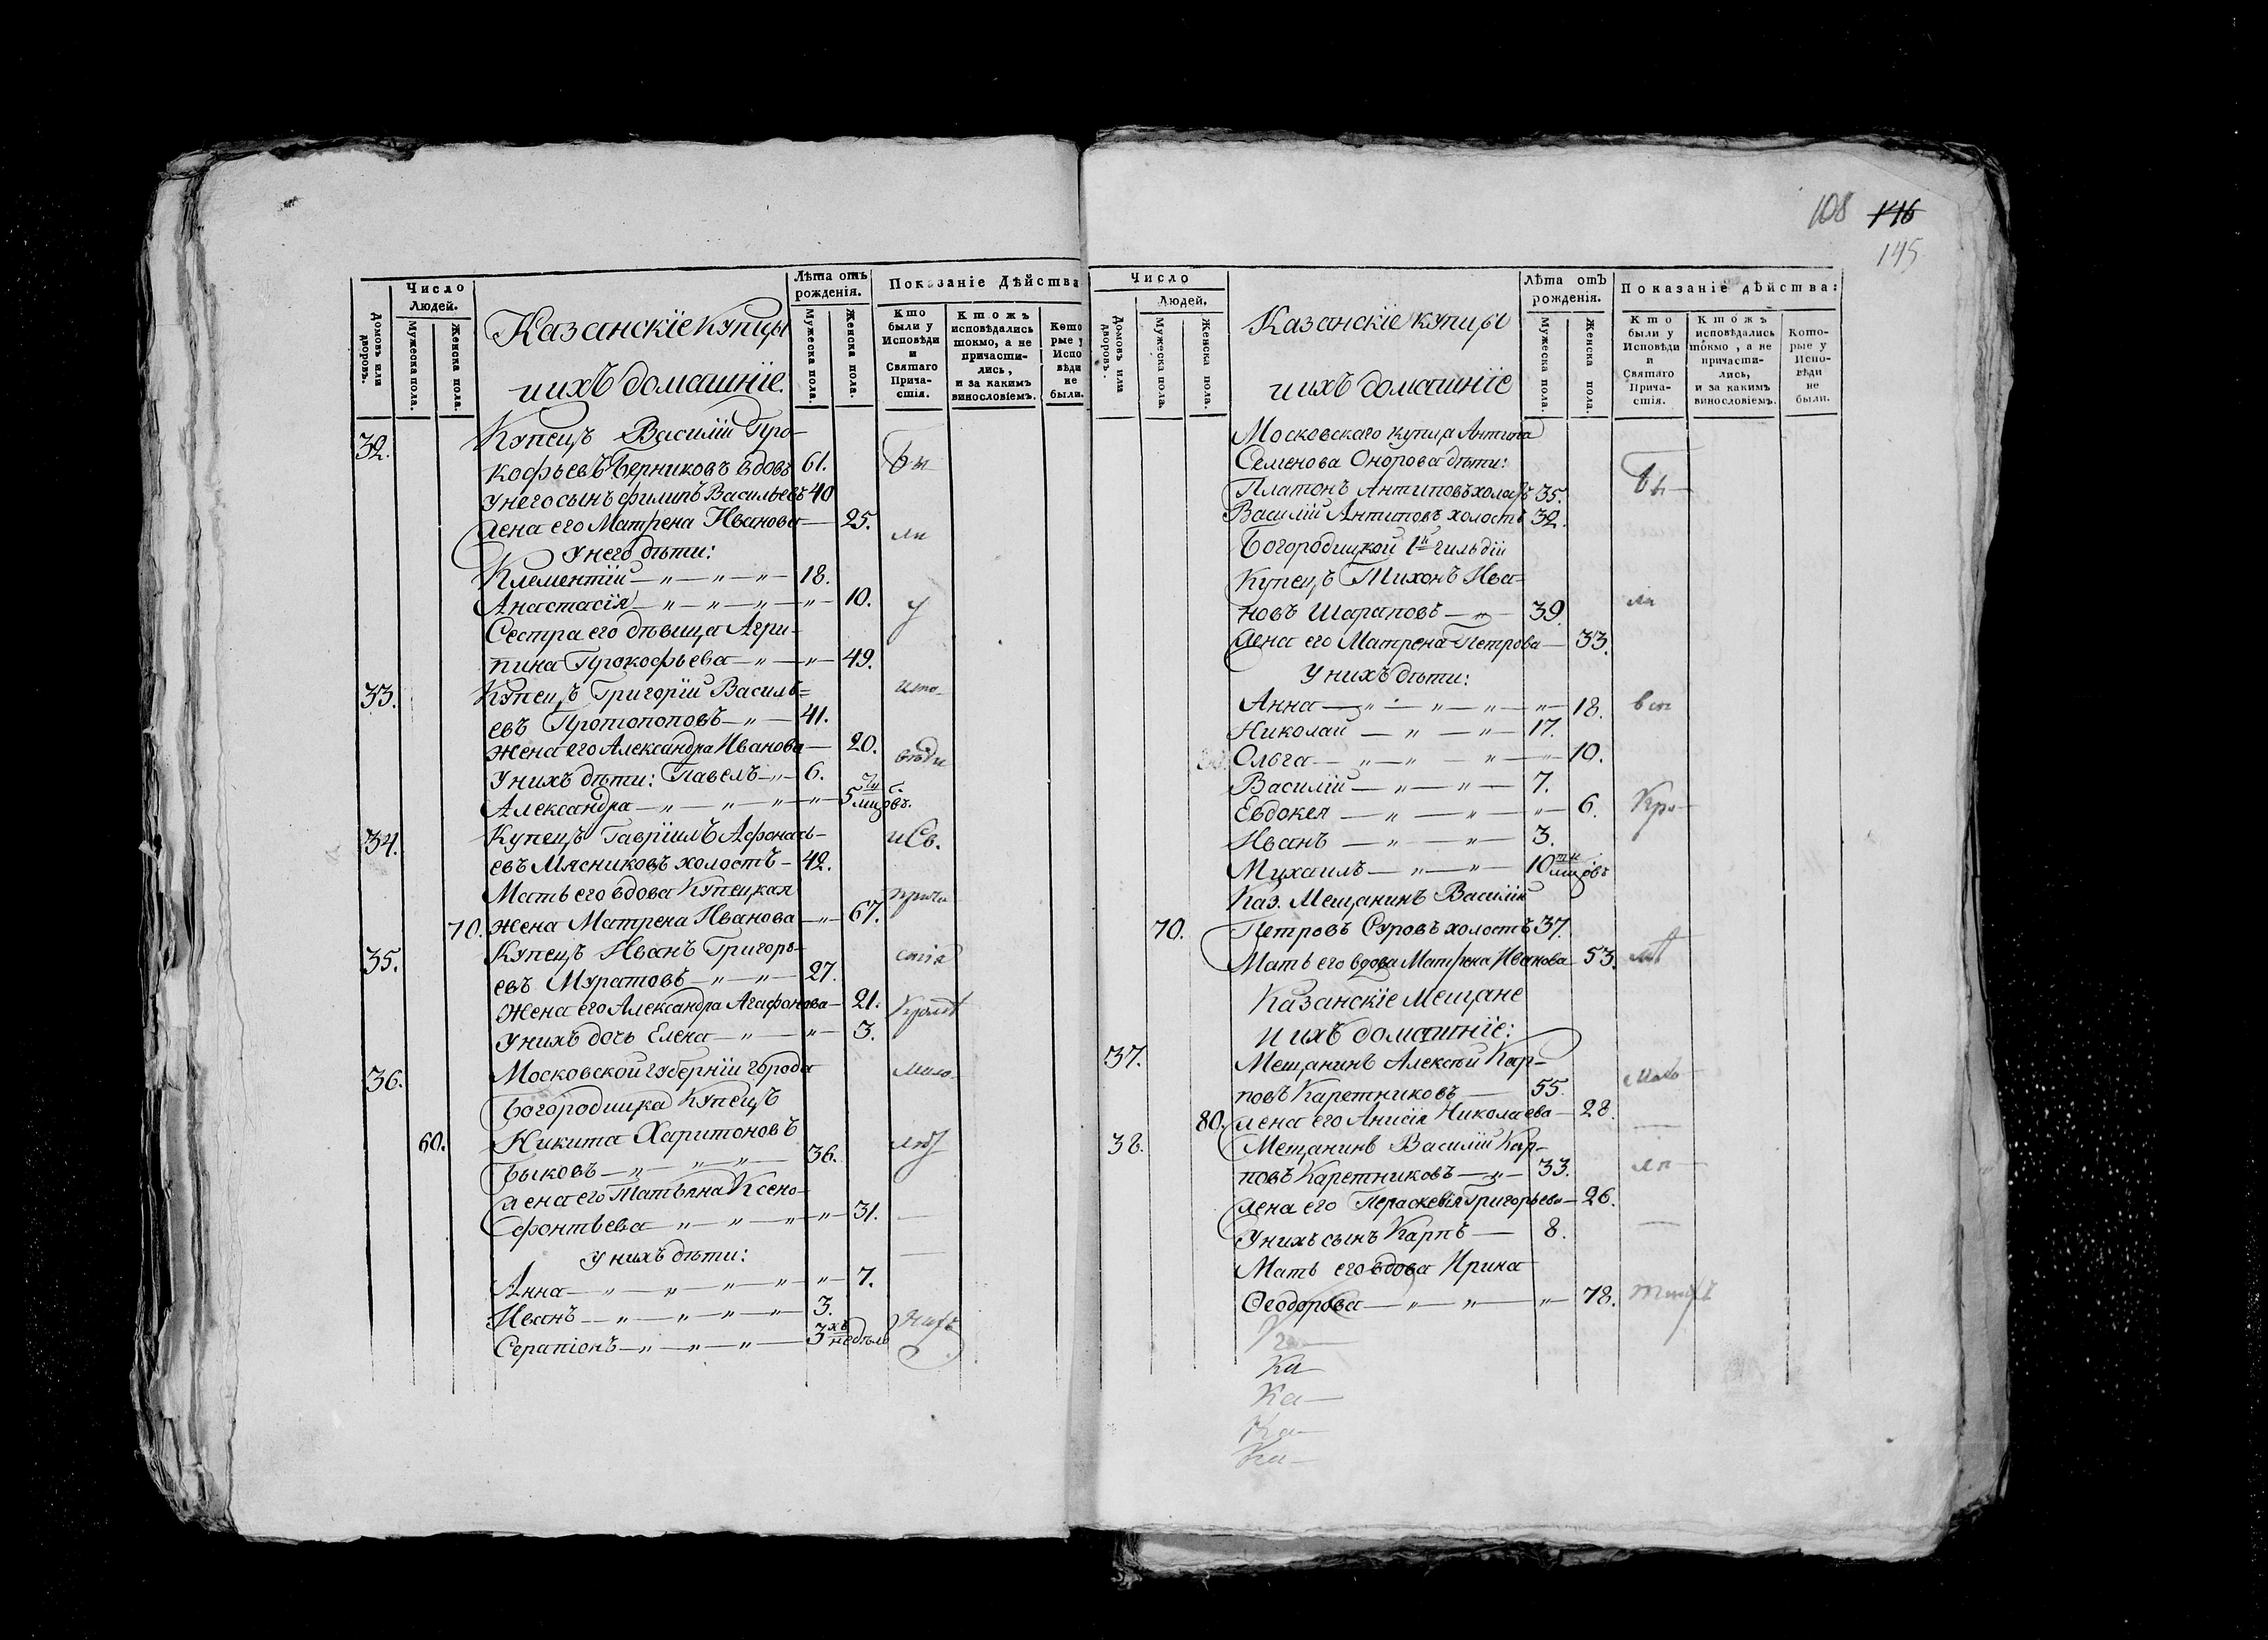 108 146
145
Число Людей.
Лѣта отъ рожденія.
Показаніе Дѣйства
Домовъ или дворовъ.
Мужеска пола.
Женска пола.
Казанскіе купцы
и ихъ домашніе
Мужеска пола.
Женска пола.
Кто были у Исповѣди и Святаго Прича- стія.
Кто жъ исповѣдались токмо, а не причасти- лись, и за какимъ винословіемъ.
Кото рые у Испо вѣди не были.
32. Купецъ Василій Про-
кофьевъ Берниковъ вдовъ 61. бы
У него сынъ Филипъ Васильевъ 40
Жена его Матрена Иванова — 25.
ли
У него дѣти:
Климентій — „ — „ — „ — 18.
Анастасія — „ — „ — „ — „ — 10. у
Сестра его дѣвица Агри-
пина Прокофьева — „ — „ — 49.
33. Купецъ Григорій Василь= испо-
евъ Протопоповъ — „ — 41.
Жена его Александра Иванова — 20. вѣди
У нихъ дѣти: Павелъ — „ — 6.
Александра — „ — „ — „ — „ — 5ти мцовъ. —
34. Купецъ Гавріилъ Афонась- и Св.
евъ Мясниковъ холостъ — 42.
Мать его вдова Купецкая причи
70. жена Матрена Иванова — „ — 67.
35. Купецъ Иванъ Григорь- стія
евъ Муратовъ — „ — „ — 27.
Жена его Александра Агафонова — 21. Кромѣ
У нихъ дочь Елена — „ — „ — 3.
36. Московской губерніи города мало-
Богородицка Купецъ
60. Никита Харитоновъ лѣт
Быковъ — „ — „ — „ — 36.
Жена его Татьяна Ксено-
фонтьева — „ — „ — „ — „ — 31. —
У нихъ дѣти: —
Анна — „ — „ — „ — „ — „ — 7.
Иванъ — „ — „ — „ — „ — 3. нихъ
Серапіонъ — „ — „ — „ — 3хъ недѣль
Число Людей.
Лѣта отъ рожденія.
Показаніе дѣйства:
Домовъ или дворовъ.
Мужеска пола.
Женска пола.
Казанскіе купцы
и ихъ домашніе
Мужеска пола.
Женска пола.
Кто были у Исповѣди и Святаго Прича- стія.
Кто жъ исповѣдались токмо, а не причасти- лись, и за какимъ винословіемъ.
Кото- рые у Испо- вѣди не были.
Московскаго купца Антипа
Семенова Онорова дѣти: бы —
Платонъ Антиповъ холостъ 35.
Василій Антиповъ холостъ 32.
Богородицкой 1й гильдіи
Купецъ Тихонъ Ива=
новъ Шараповъ — „ — 39. ли
Жена его Матрена Петрова — 33.
У нихъ дѣти:
Анна — „ — „ — „ — „ — 18. всѣ
Николай — „ — „ — 17.
Ольга — „ — „ — „ — „ — 10.
Василій — „ — „ — 7.
Евдокея — „ — „ — „ — 6. Кро —
Иванъ — „ — „ — 3.
Михаилъ — „ — „ — 10ти мцовъ
Каз. Мещанинъ Василій
70. Петровъ Суровъ холостъ 37.
Мать его вдова Матрена Иванова 53. мѣ
Казанскіе Мещане
и ихъ домашніе:
37. Мещанинъ Алексѣй Кар-
повъ Каретниковъ — 55. мало —
80. Жена его Анисія Николаева — 28. —
38. Мещанинъ Василій Кар-
повъ Каретниковъ — „ — 33. лѣ —
Жена его Пераскевія Григорьева — 26.
У нихъ сынъ Карпъ — 8. —
Мать его вдова Ирина
Ѳеодорова — „ — „ — „ — 78.
Ка —
Ка —
Ка —
Ка —
Ка —